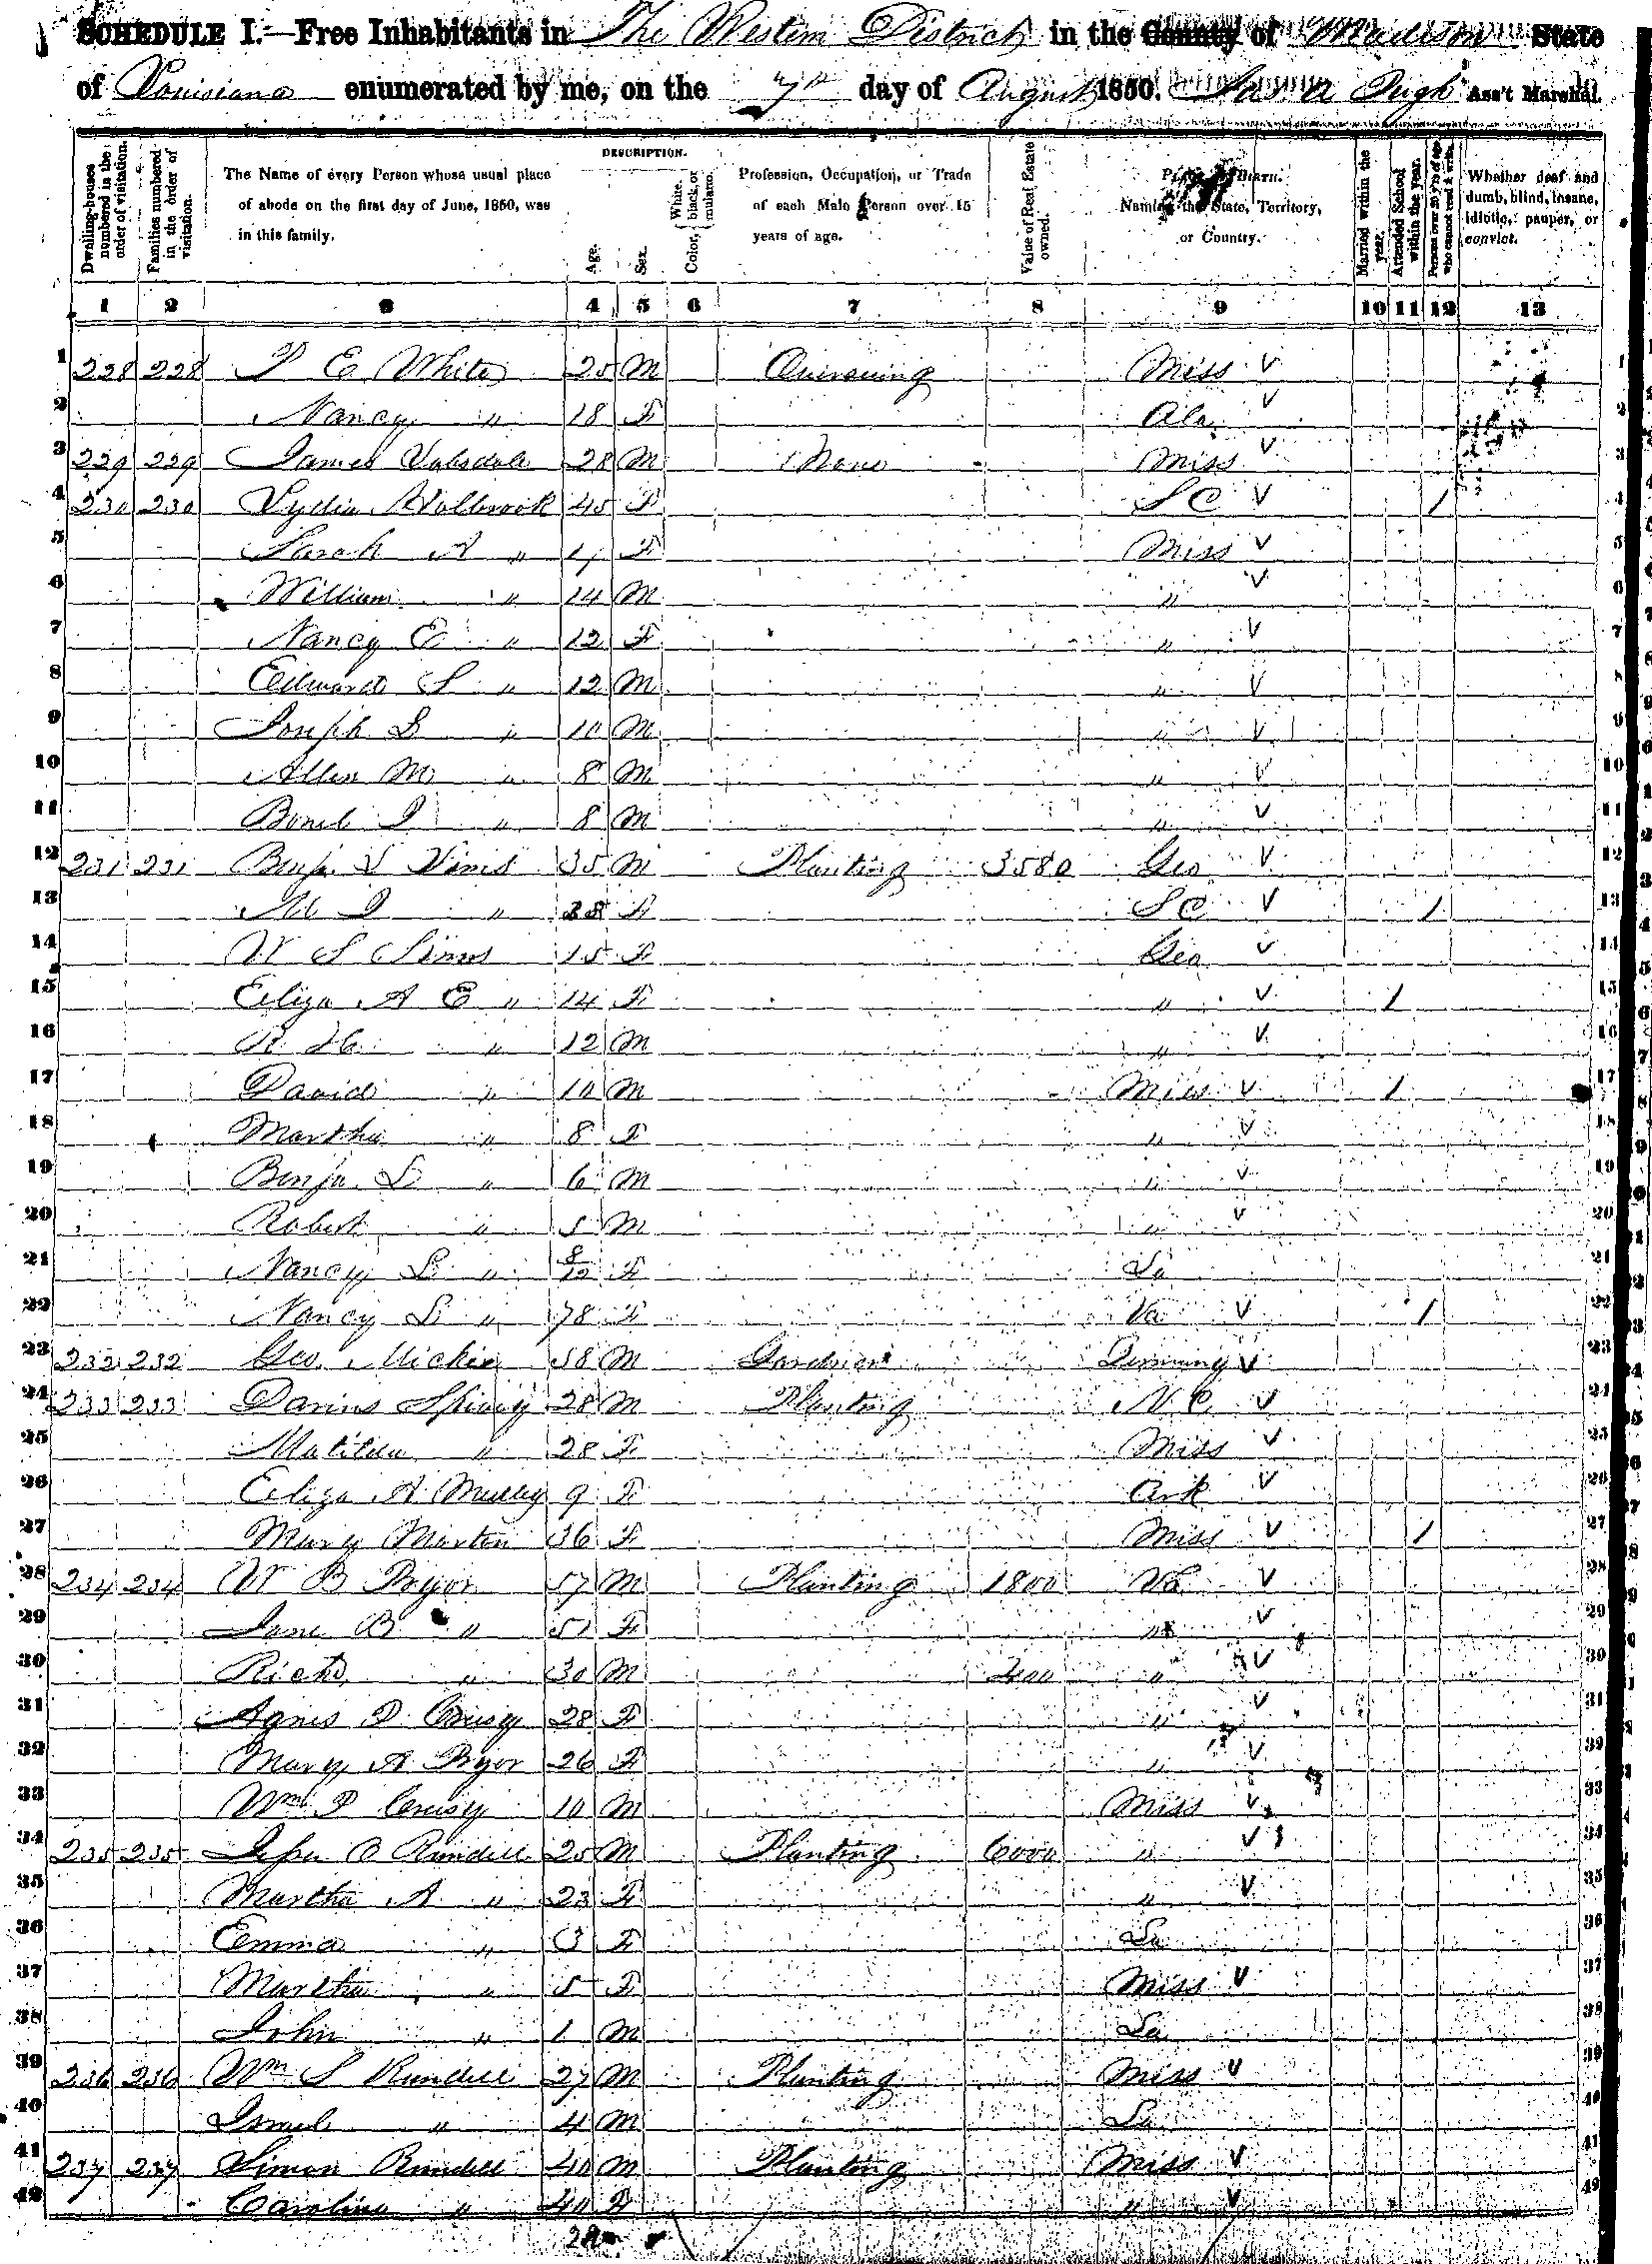 SCHEDULE I.—Free Inhabitants in The Western District in the County of Madison State
of Louisiana enumerated by me, on the 7th day of August 1850. Pugh Ass't Marshal.
Dwelling-houses numbered in the order of visitation. Families numbered in the order of visitation. The Name of every Person whose usual place of abode on the first day of June, 1850, was in this family. DESCRIPTION. Age. Sex. Color, White, black, or mulatto. Profession, Occupation, or Trade of each Male Person over 15 years of age. Value of Real Estate owned. Place of Birth. Naming the State, Territory, or Country. Married within the year. Attended School within the year. Persons over 20 y'rs of age who cannot read & write. Whether deaf and dumb, blind, insane, idiotic, pauper, or convict.
1 2 3 4 5 6 7 8 9 10 11 12 13
1 228 228 P E White 25 M Overseeing Miss V 1
2 Nancy " 18 F Ala V 2
3 229 229 James 28 M None Miss V 3
4 230 230 Lydia Holbrook 45 F S C V / 4
5 Sarah A " 17 F Miss V 5
6 William " 14 M " V 6
7 Nancy E " 12 F " V 7
8 Edward S " 12 M " V 8
9 Joseph L " 10 M " V 9
10 Allen M " 8 M " V 10
11 " 8 M " V 11
12 231 231 Benj. 35 M Planting 3580 Geo V 12
13 " 38 F S C V / 13
14 W S Sims 15 F Geo V 14
15 Eliza A E " 14 F " V / 15
16 R H " 12 M " V 16
17 David " 10 M Miss V / 17
18 Martha " 8 F " V 18
19 Benja L " 6 M " V 19
20 Robert " 5 M " V 20
21 Nancy L " 8/12 F La 21
22 Nancy L " 78 F Va V / 22
23 232 232 Geo. 58 M Gardner Germany V 23
24 233 233 Darius Spivey 28 M Planting N. C. V 24
25 Matilda " 28 F Miss V 25
26 Eliza A 9 F Ark V 26
27 Mary Martin 36 F Miss V / 27
28 234 234 W B Pryor 57 M Planting 1800 Va V 28
29 Jane B " 51 F " V 29
30 Richd " 30 M 400 " V 30
31 Agnes P Creasy 28 F " V 31
32 Mary A Pryor 26 F " V 32
33 Wm P Creasy 10 M Miss V 33
34 235 235 Rundell 25 M Planting 6000 " V 34
35 Martha A " 23 F " V 35
36 Emma " 3 F La 36
37 Martha " 5 F Miss V 37
38 John " 1 M La 38
39 236 236 Wm S Rundell 27 M Planting Miss V 39
40 " 4 M La 40
41 237 237 Simon Rundell 40 M Planting Miss V 41
42 Caroline " 40 F " V 42